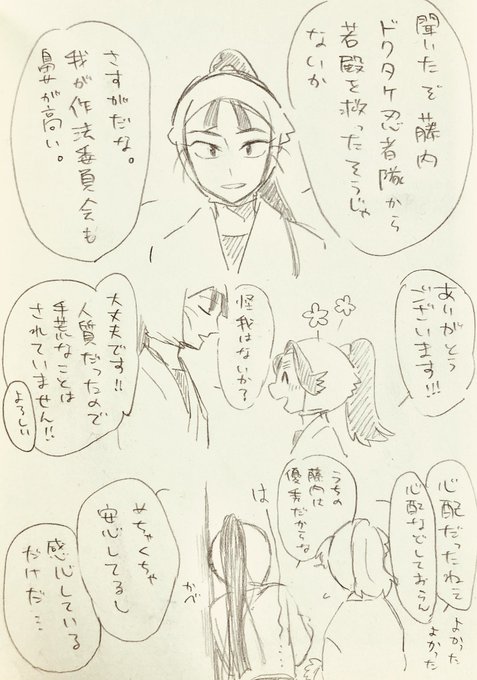 聞いたぞ藤内
ドクタケ忍者隊から
若殿を救ったそうじゃ
ないか
さすがだな。
我が作法委員会も
鼻が高い。
ありがとう
ございます!!!
怪我はないか?
大丈夫です!!
人質だったので
手荒なことは
されていません!!
よろしい
心配だったねって
心配などしておらん
よかった
よかった
うちの
藤内は
優秀だからな
は
かべ
めちゃくちゃ
安心してるし
感心している
だけだ…